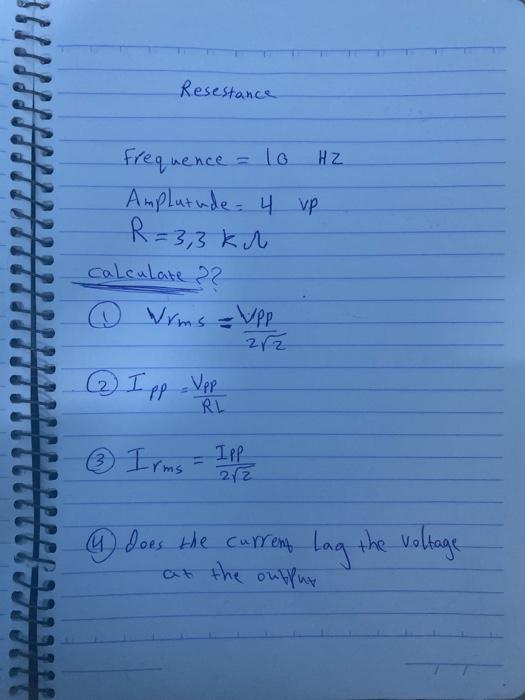 Resestance
Frequence = 10 HZ
Amplutude = 4 vp
R = 3,3 k Ω
Calculate ??
① Vrms = Vpp / 2√2
② Ipp = Vpp / RL
③ Irms = Ipp / 2√2
④ Does the current lag the voltage
at the output